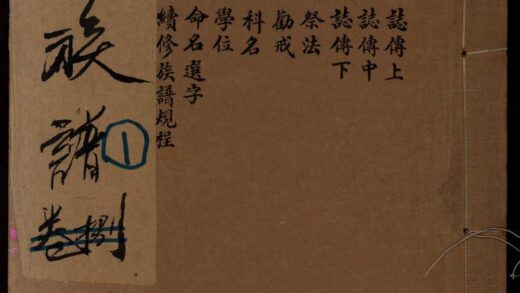 誌傳上
誌傳中
誌傳下
祭法
勸戒
科名
學位
命名選字
續修族譜規程
族譜
①
卷捌